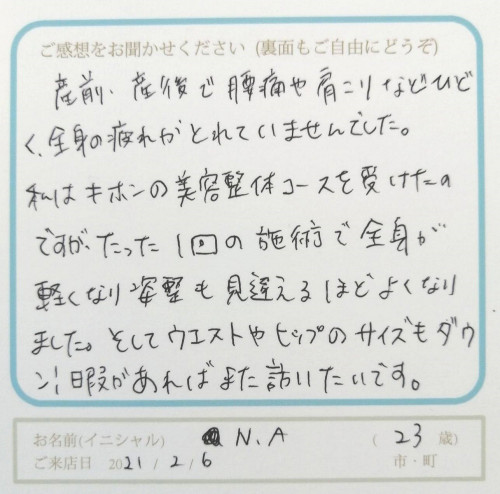 ご感想をお聞かせください (裏面もご自由にどうぞ)
産前、産後で腰痛や肩こりなどひど
く、全身の疲れがとれていませんでした。
私はキホンの美容整体コースを受けたの
ですが、たった1回の施術で全身が
軽くなり姿整も見違えるほどよくなり
ました。そしてウエストやヒップのサイズもダウ
ン! 暇があればまた訪いたいです。
お名前(イニシャル) N.A ( 23 歳)
ご来店日 2021 / 2 / 6 市・町